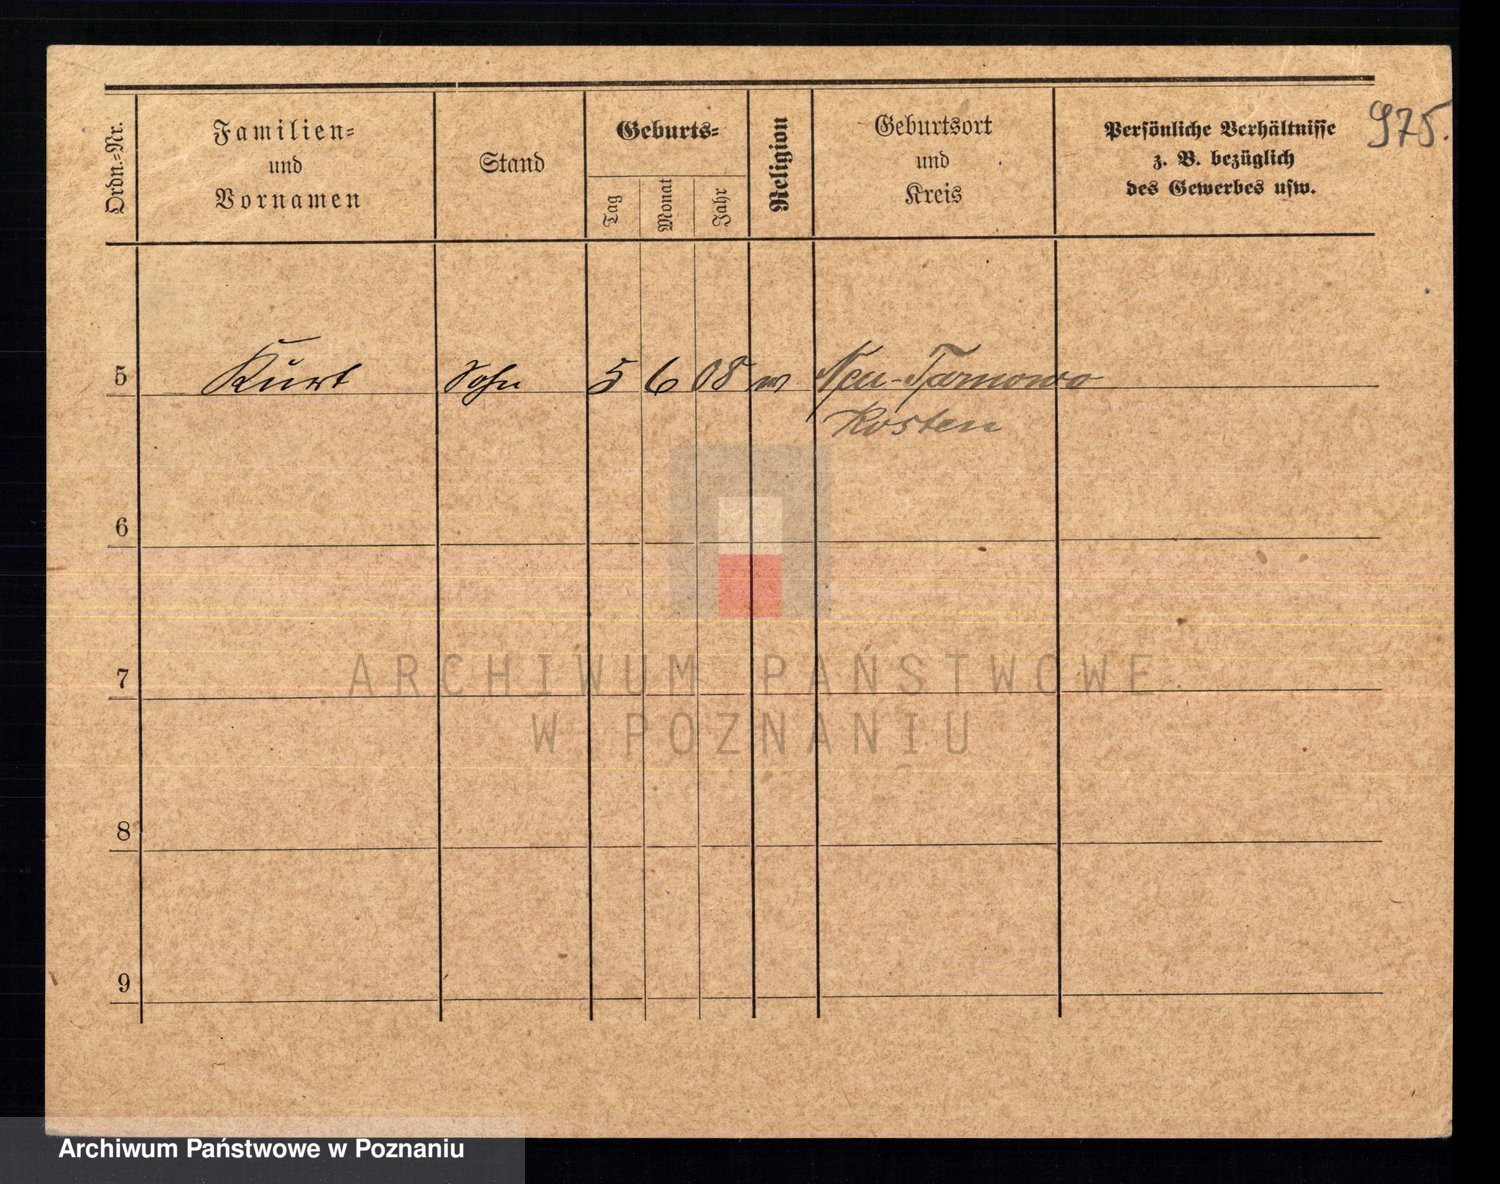 975.
Ordn.-Nr.
Familien-
und
Vornamen
Stand
Geburts-
Tag
Monat
Jahr
Religion
Geburtsort
und
Kreis
Persönliche Verhältnisse
z. B. bezüglich
des Gewerbes usw.
5 Kurt Sohn 5 6 08 Neu-Tarnowo
Kosten
6
7
8
9
ARCHIWUM PAŃSTWOWE
W POZNANIU
Archiwum Państwowe w Poznaniu